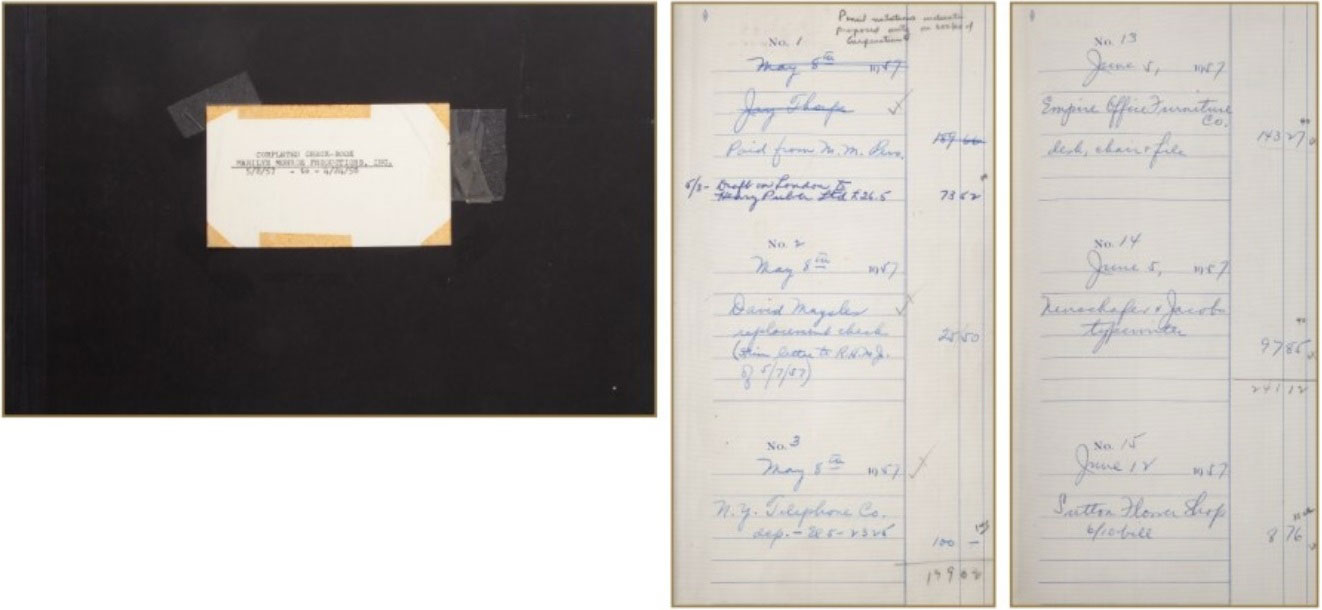 COMPLETED CHECK-BOOK
MARILYN MONROE PRODUCTIONS, INC.
5/8/57 - to - 4/24/58
Pencil notations indicate
proposed entry on books of
Corporation
No. 1
May 8th 1957
Jay Thorpe
159 66
Paid from M.M. Pers.
5/3- Draft on London to
Ltd £26.5
73 52
No. 2
May 8th 1957
David Maysles
replacement check
25 50
(from letter to R.H.M.J.
of 5/7/57)
No. 3
May 8th 1957
N.Y. Telephone Co.
dep. -
100 -
199 02
No. 13
June 5, 1957
Empire Office Furniture
Co.
143 27
desk, chair & file
No. 14
June 5, 1957
& Jacobs
typewriter
97 85
241 12
No. 15
June 12 1957
Sutton Flower Shop
6/10 bill
8 76